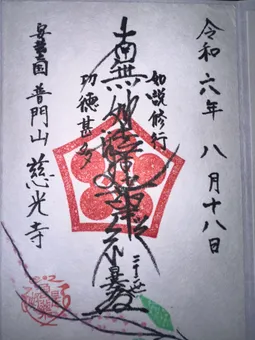 令和六年 八月十八日
如説修行
南無妙法蓮華経
功徳甚多
安芸国 普門山 慈光寺